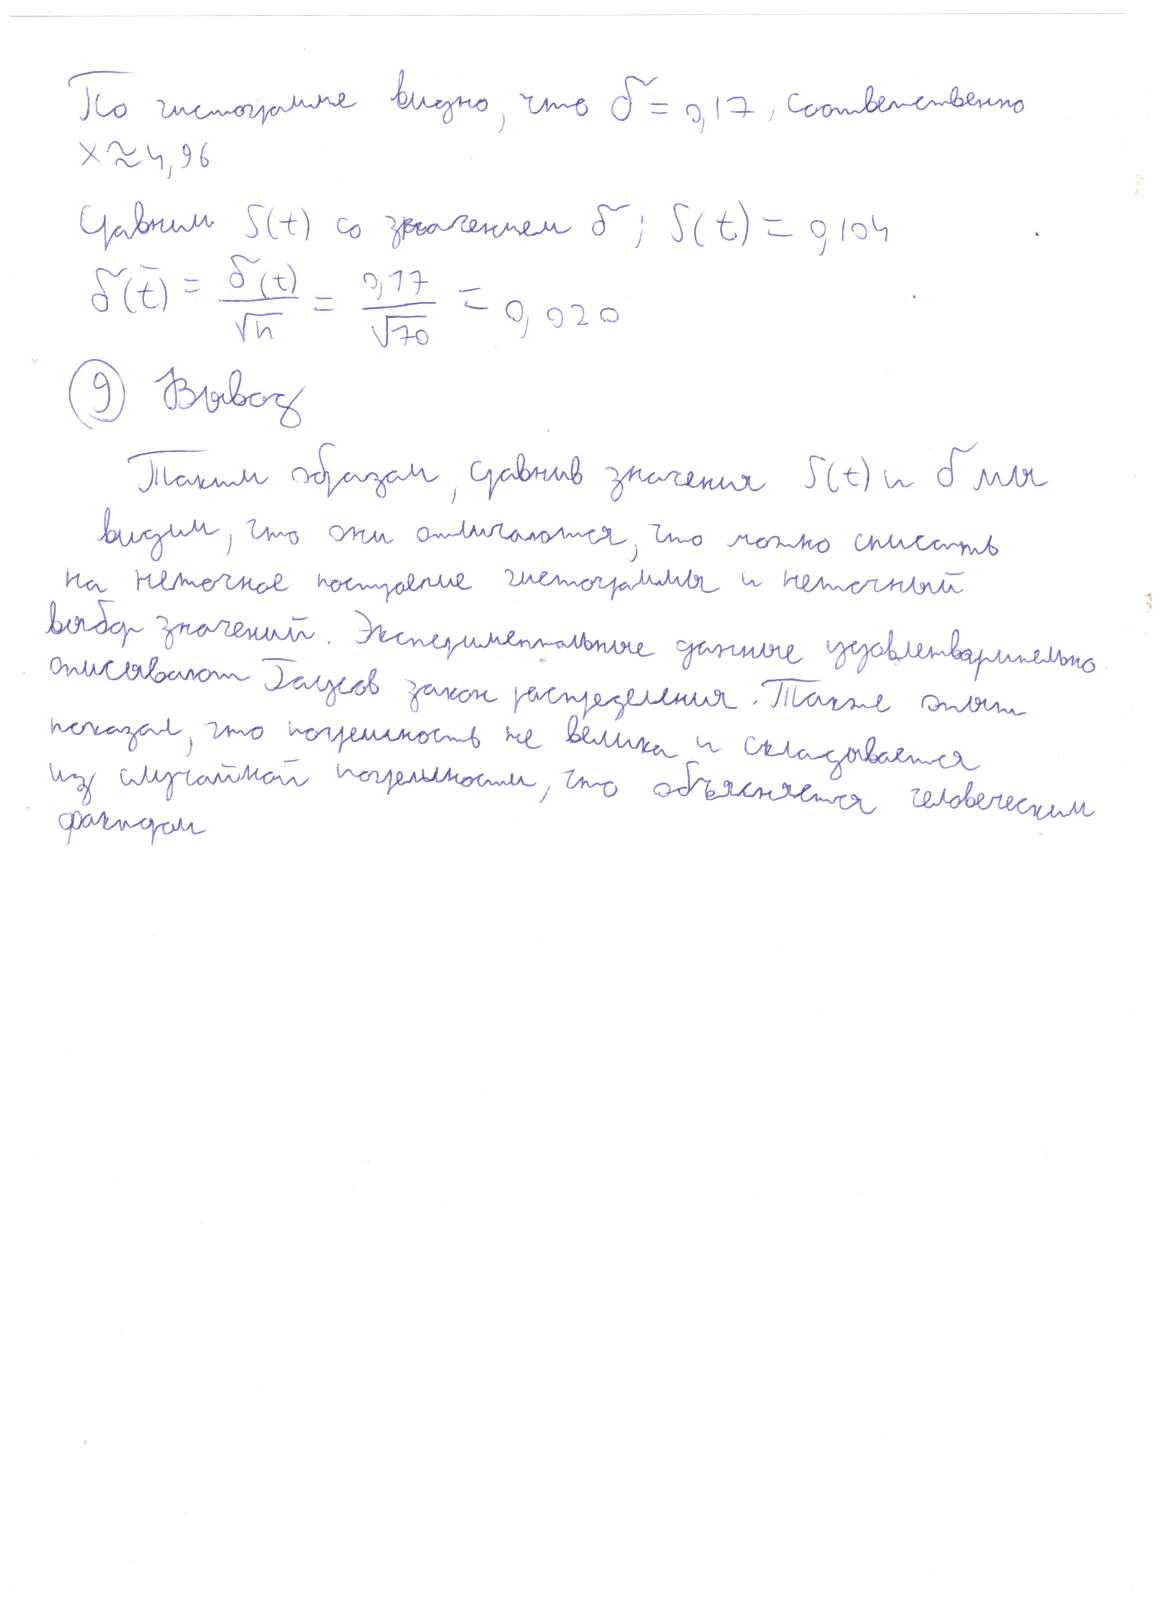 По гистограмме видно, что σ = 0,17, соответственно
x ≈ 4,96
Сравним S(t) со значением σ; S(t) = 0,104
σ(t̄) = σ(t)/√n = 0,17/√70 = 0,020
⑨ Вывод
Таким образом, сравнив значения S(t) и σ мы
видим, что они отличаются, что можно списать
на неточное построение гистограммы и неточный
выбор значений. Экспериментальные данные удовлетварительно
описывают Гаусов закон распределения. Также опыт
показал, что погрешность не велика и складывается
из случайной погрешности, что объясняется человеческим
фактором